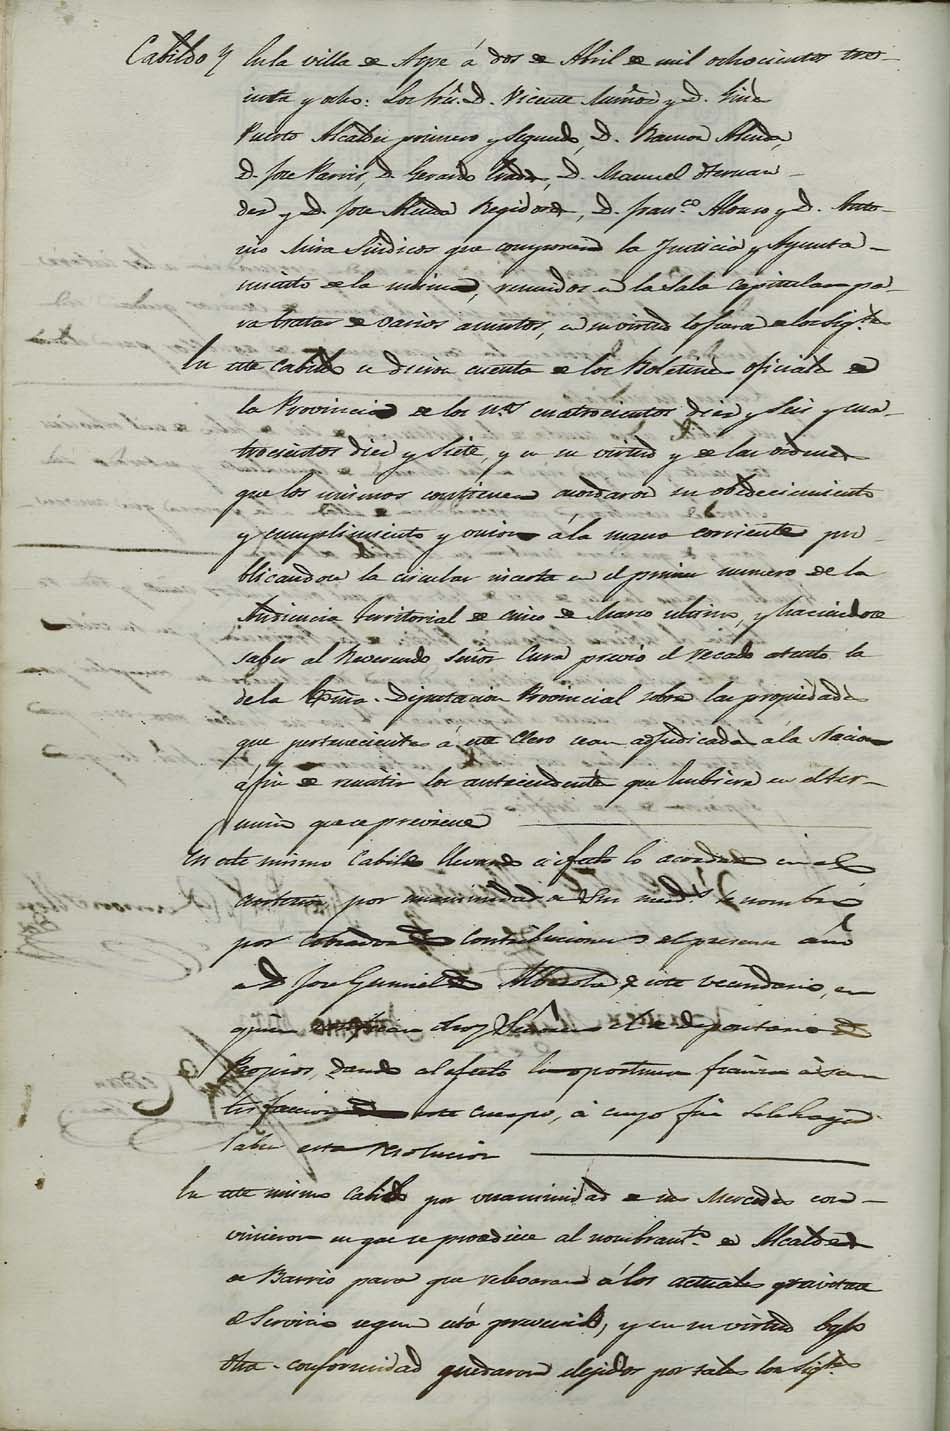 Cabildo En la villa de Aspe á dos de Abril de mil ochocientos tre-
inta y ocho: Los Sres. D. Vicente Muñoz y D. Ginés
Puerto Alcaldes primero y Segundo, D. Ramon Almda,
D. Jose Pavia, D. Gerardo D. Manuel Hernan-
dez y D. Jose Regidores, D. Franco. Alonso y D. Anto-
nio Mira Sindicos que componen la Justicia y Ayunta-
miento de la misma, reunidos en la Sala capitular pa-
ra tratar de varios asuntos, en su virtud lo hacen de los sigtes.
En este Cabildo se dieron cuenta de los Boletines oficiales de
la Provincia de los nos. cuatrocientos diez y seis y cua-
trocientos diez y siete, y en su virtud y de las ordenes
que los mismos contienen acordaron su obedecimiento
y cumplimiento y union á la mano corriente pu-
blicandose la circular inserta en el primer numero de la
Audiencia territorial de cinco de Marzo ultimo, y haciendose
saber al Reverendo Señor Cura previo el recado atento la
de la Exma. Diputacion Provincial sobre las propiedades
que pertenecientes á este Clero sean adjudicadas á la Nacion
á fin de remitir los antecedentes que hubiere en el ter-
mino que se previene
En este mismo Cabildo llevando á efecto lo acordado en el
anterior por unanimidad de Sus merds. se nombró
por Cobrador de Contribuciones del presente año
a D. Jose Gumiel de Alberola, de este vecindario, en
quien el de depositario de
Propios, dando al efecto la oportuna fianza á sa-
tisfaccion de este cuerpo, á cuyo fin se le haga
saber esta resolucion
En este mismo Cabildo por unanimidad de sus Mercedes con-
vinieron en que se procediese al nombramto. de Alcaldes
de Barrio para que relevaran á los actuales
Servicio segun está prevenido, y en su virtud bajo
dha. conformidad quedaron elejidos por tales los sigtes.